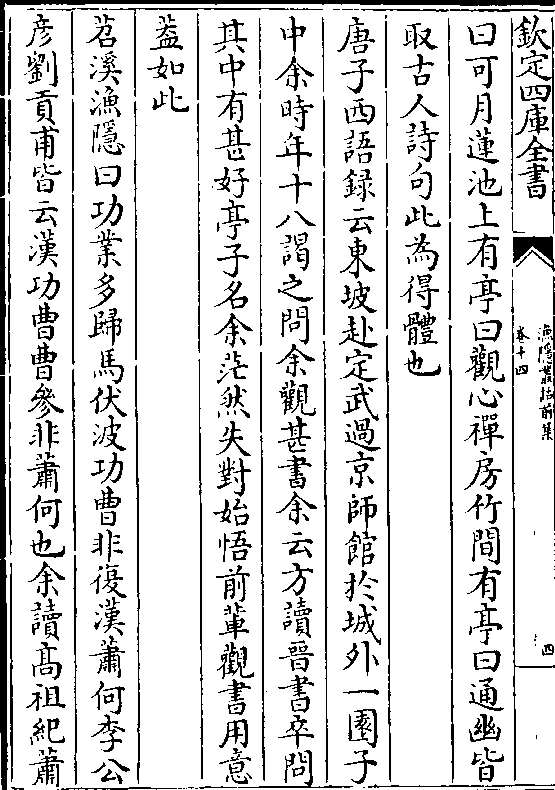 欽定四庫全書
漁隱叢話前集
卷十四
四
曰可月蓮池上有亭曰觀心禪房竹間有亭曰通幽皆
取古人詩句此為得體也
唐子西語録云東坡赴定武過京師館於城外一園子
中余時年十八謁之問余觀甚書余云方讀晉書卒問
其中有甚好亭子名余茫然失對始悟前輩觀書用意
葢如此
苕溪漁隱曰功業多歸馬伏波功曹非復漢蕭何李公
彦劉貢甫皆云漢功曹曹參非蕭何也余讀髙祖紀蕭